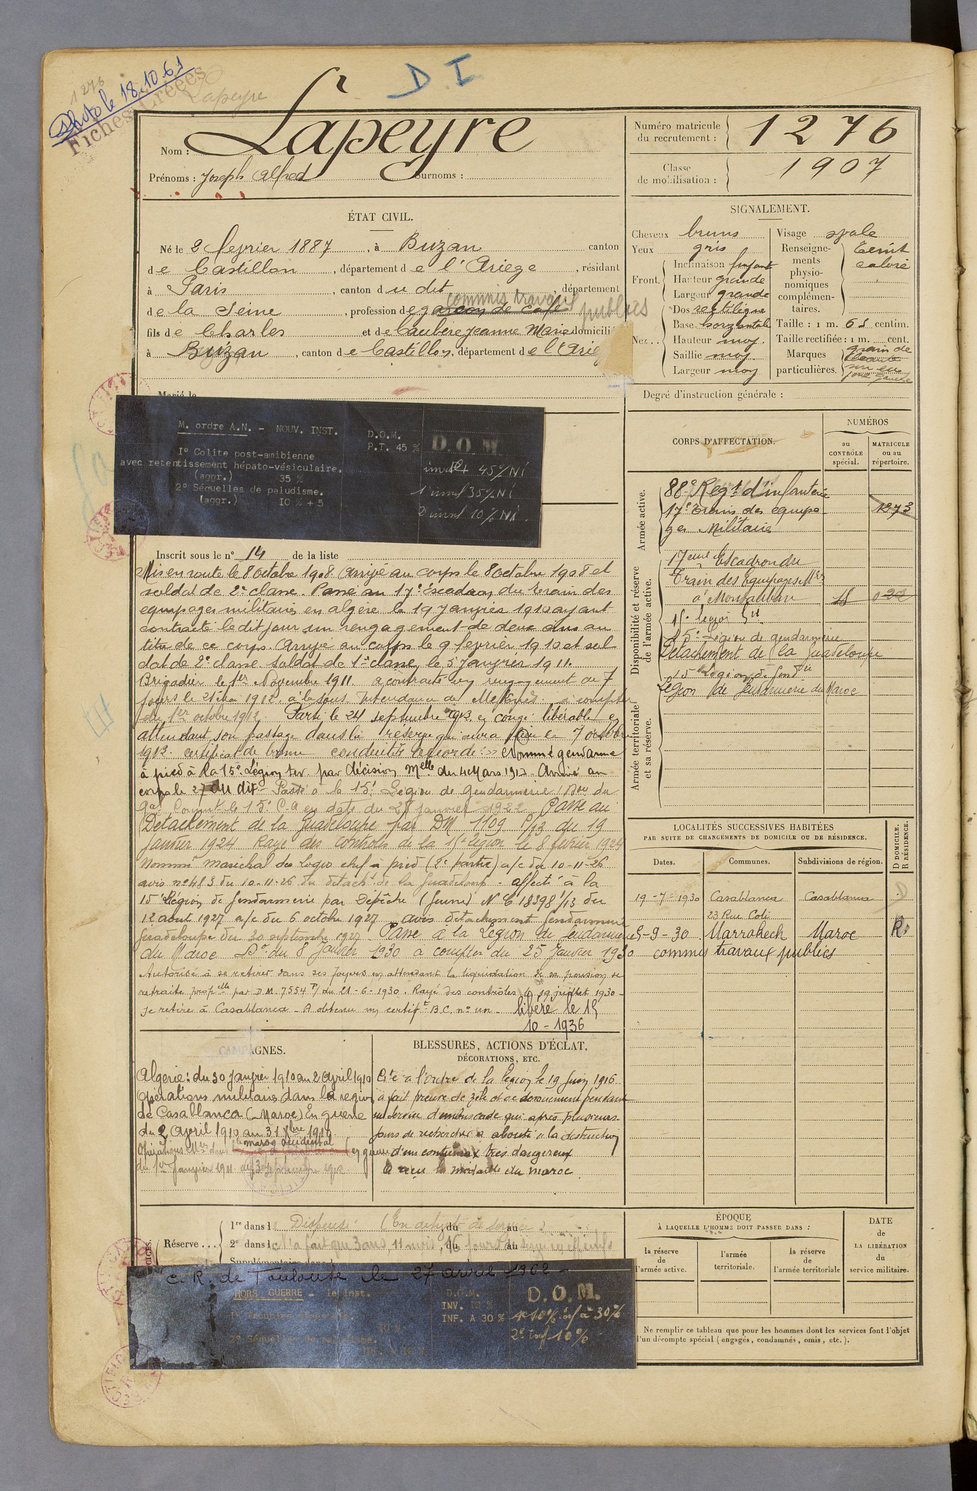 1276
Photo le 18.10.61
Fiches créées
Lapeyre
D I
Nom : Lapeyre
Prénoms : Joseph Alfred Surnoms :
Numéro matricule du recrutement : 1276
Classe de mobilisation : 1907
ÉTAT CIVIL.
Né le 2 février 1887, à Buzan canton
de Castillon, département de l'Ariège, résidant
à Paris, canton du dit département
commis travaux publics
de la Seine, profession de garçon de café
fils de Charles et de Caubère Jeanne Marie domiciliés
à Buzan, canton de Castillon, département de l'Ariège
SIGNALEMENT.
Cheveux bruns
Yeux gris
Front Inclinaison fuyant
Hauteur grande
Largeur grande
Nez Dos rectiligne
Base horizontale
Hauteur moy.
Saillie moy.
Largeur moy
Visage ovale
Renseignements physionomiques complémentaires. Teint coloré
Taille : 1 m. 61 centim.
Taille rectifiée : 1 m. cent.
Marques particulières. grain de
Degré d'instruction générale :
M. ordre A.N. - NOUV. INST.
I° Colite post-amibienne
avec retentissement hépato-vésiculaire.
(aggr.) 35 %
2° Séquelles de paludisme.
(aggr.) IO % + 5
D.O.M.
P.T. 45 %
D.O.M.
Inscrit sous le n° 14 de la liste
Mis en route le 8 octobre 1908 Arrivé au corps le 8 octobre 1908 et
soldat de 2e classe. Passé au 17e Escadron du train des
équipages militaires en Algérie le 19 janvier 1910 ayant
contracté le dit jour un rengagement de deux ans au
titre de ce corps. Arrivé au corps le 9 février 1910 et sol
dat de 2e classe. Soldat de 1ère classe, le 5 janvier 1911.
Brigadier le 1er Novembre 1911. a contracté un rengagement de 7
du 1er octobre 1912 Parti le 24 septembre 1912 en congé libérable en
attendant son passage dans la réserve qui aura lieu en 7 octobre
1912. certificat de bonne conduite accordé. Nommé gendarme
à pied à la 15e Légion ter. par décision Melle du 4 Mars 1913 Arrivé au
corps le 27 du dit Passé à la 15e Légion de gendarmerie
Passé au
Détachement de la Guadeloupe par DM 1109 P/13 du 19
Janvier 1924 Rayé des contrôles de la 15e légion le 8 février 1924
Nommé maréchal des Logis chef à pied (2e partie) a/c du 10-11-26
avis n° 483 du 10-11-26 du détacht de la Guadeloupe. affecté à la
15e Légion de gendarmerie par Dépêche (Guerre) N° E 18398 /13 du
12 août 1927 a/c du 6 octobre 1927 avis détachement gendarmerie
Guadeloupe du 30 septembre 1927. Passé à la Légion de Gendarmerie
du Maroc Don du 8 janvier 1930 à compter du 25 janvier 1930
Autorisé à se retirer dans ses foyers en attendant la liquidation de sa pension de
retraite propelle par D.M. 7554 P/ du 21-6-1930. Rayé des contrôles le 19 juillet 1930-
Se retire à Casablanca - A obtenu un certift B.C. n° un - libéré le 15
10 - 1936
CORPS D'AFFECTATION.
NUMÉROS
au CONTRÔLE spécial.
MATRICULE ou au répertoire.
Armée active.
88e Regt d'infanterie
17e Train des équipa-
ges Militaires 1273
Disponibilité et réserve de l'armée active.
17eme Escadron du
Train des Equipages Mres
à Montauban
15e Légion de gendarmerie
Détachement de la Guadeloupe
15e Légion de gendie
Légion de Gendarmerie du Maroc
Armée territoriale et sa réserve.
LOCALITÉS SUCCESSIVES HABITÉES
PAR SUITE DE CHANGEMENTS DE DOMICILE OU DE RÉSIDENCE.
Dates. Communes. Subdivisions de région. D DOMICILE. R RÉSIDENCE.
19-7-1930 Casablanca Casablanca D
23 Rue Coli
25-9-30 Marrakech Maroc R.
commis travaux publics
CAMPAGNES.
Algérie : du 30 janvier 1910 au 2 avril 1910
Opérations militaires dans la région
de Casablanca (Maroc) En guerre
du 2 avril 1910 au 31 Xbre 1910
Maroc occidental
BLESSURES, ACTIONS D'ÉCLAT,
DÉCORATIONS, ETC.
Cité à l'ordre de la légion le 19 juin 1916
a fait preuve de zèle et de dévouement pendant
un service d'embuscade qui après plusieurs
jours de recherches a abouti à la destruction
d'un contumax très dangereux
a reçu la médaille du Maroc
Réserve
1re dans l Dispensé du au
2e dans l du au
ÉPOQUE
À LAQUELLE L'HOMME DOIT PASSER DANS :
la réserve de l'armée active.
l'armée territoriale.
la réserve de l'armée territoriale
DATE DE LA LIBÉRATION du service militaire.
Ne remplir ce tableau que pour les hommes dont les services font l'objet
d'un décompte spécial (engagés, condamnés, omis, etc.).
C. R. de Toulouse le 27 avril 1962 -
HORS GUERRE - 1e inst.
D.O.M.
INF. A 30 %
D.O.M.
2° inf 10 %